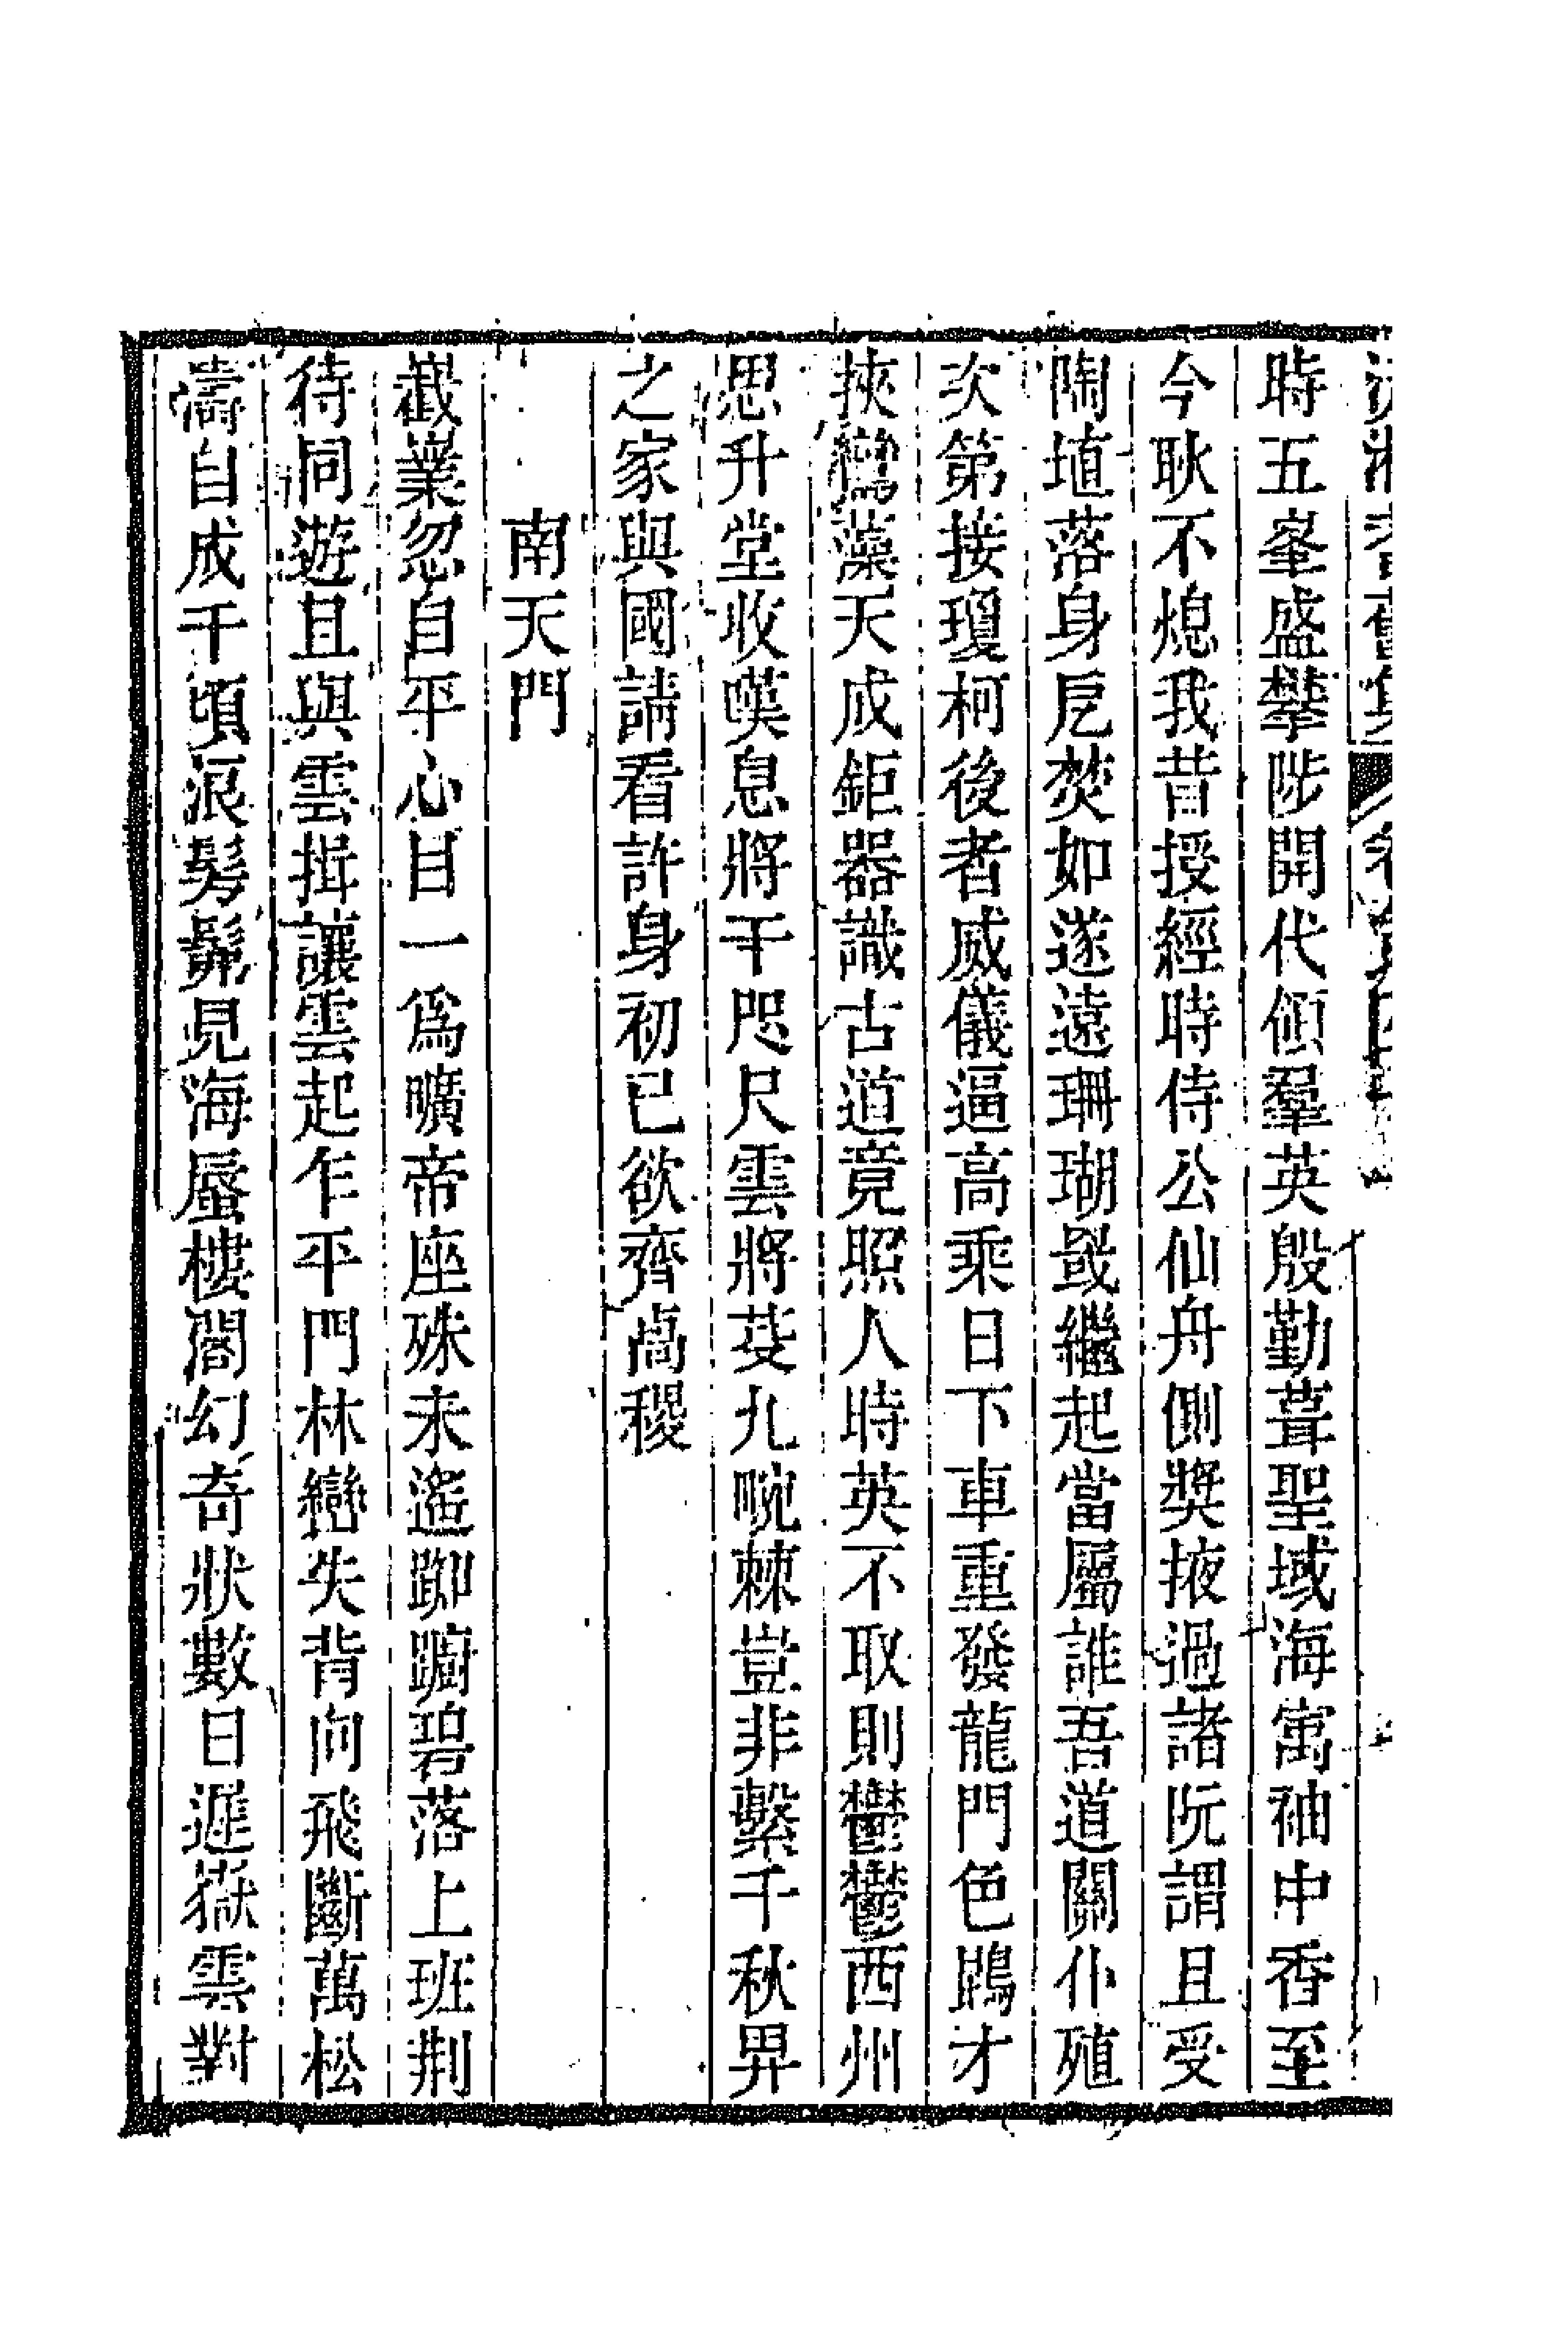 沅湘耆舊集 卷第
時五峯盛攀陟開代傾羣英殷勤葺聖域海寓袖中香至
今耿不熄我昔授經時侍公仙舟側獎掖過諸阮謂且受
陶埴落身戹焚如遂遠珊瑚罭繼起當屬誰吾道關仆殖
次第接瓊柯後者威儀逼高乘日下車重發龍門色鵾才
挾鸞藻天成鉅器識古道竟照人時英不取則鬱鬱西州
思升堂收嘆息將干咫尺雲將芟九畹棘豈非繫千秋畀
之家與國請看許身初已欲齊卨稷
南天門
嶻嶪忽自平心目一爲曠帝座殊未遙踟躕碧落上班荆
待同遊且與雲揖讓雲起乍平門林巒失背向飛斷萬松
濤自成千頃浪髣髴見海蜃樓閣幻奇狀數日遲嶽雲對